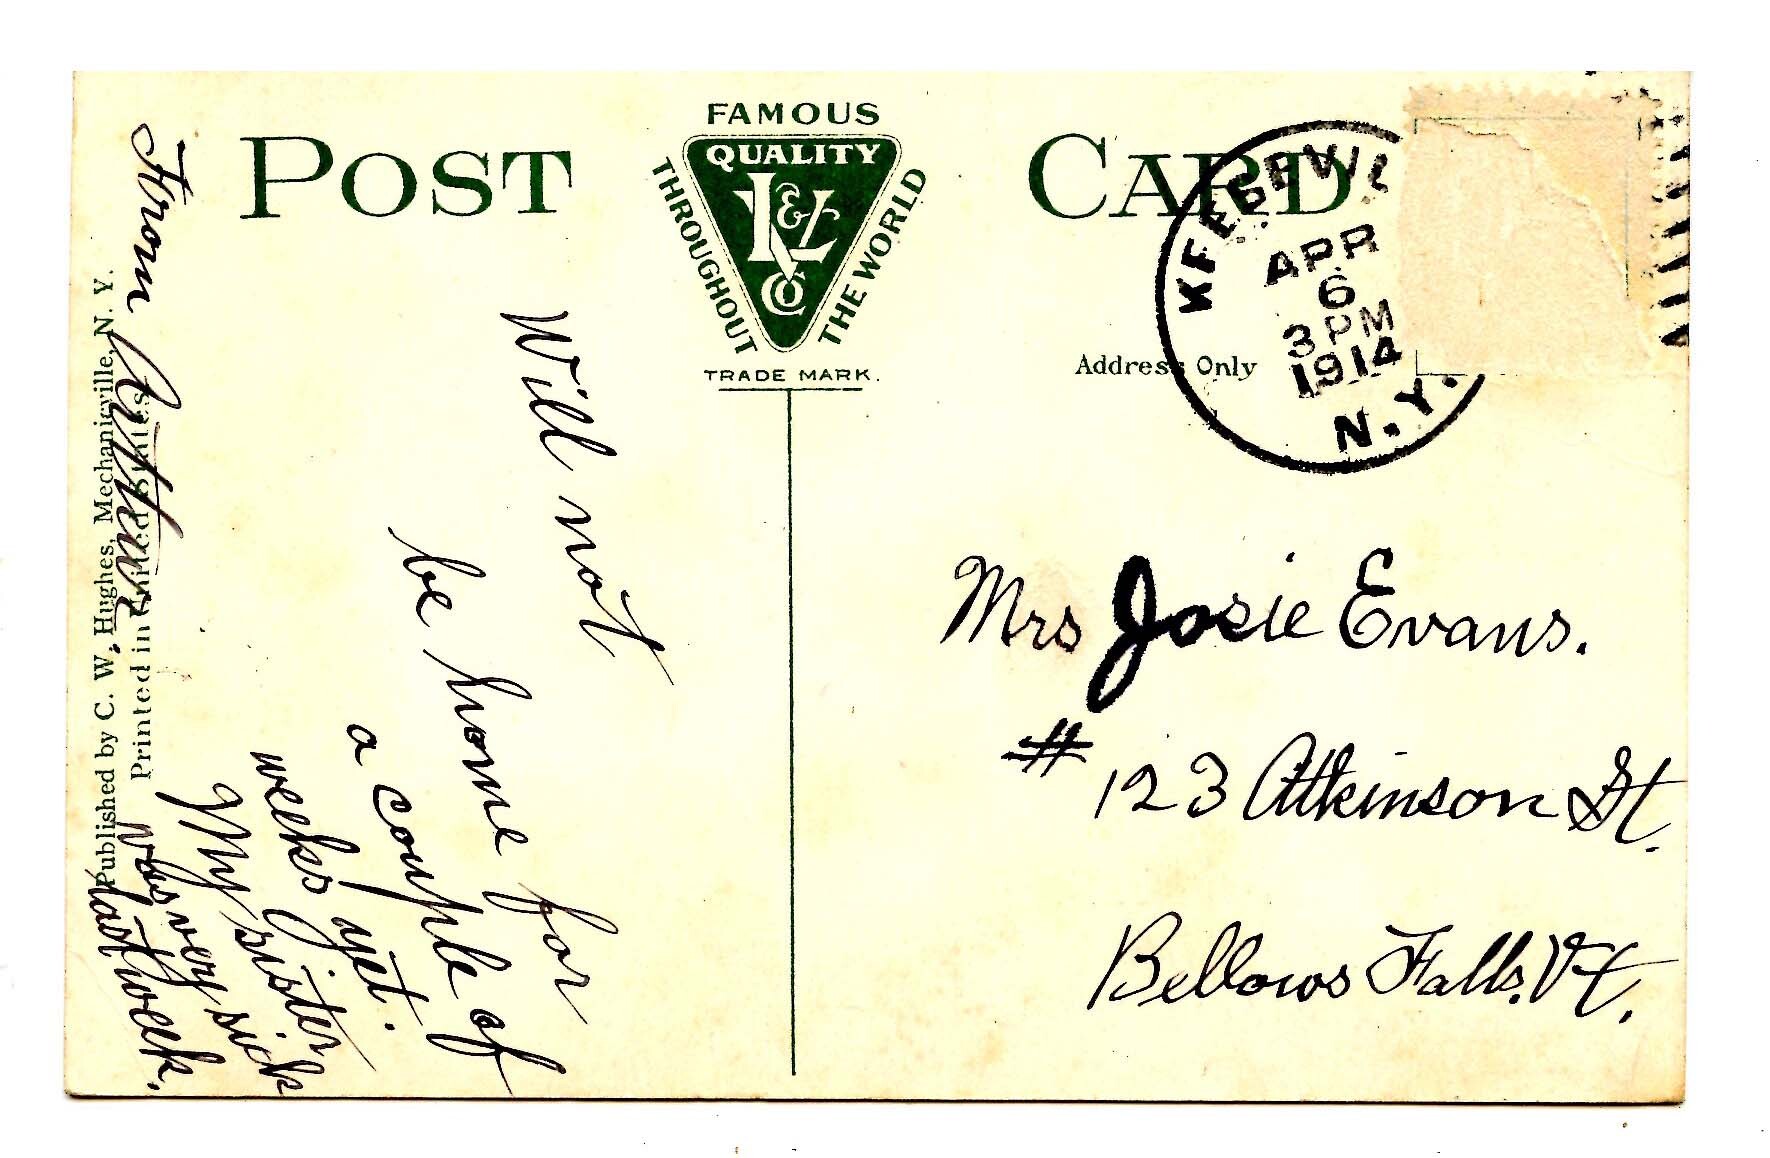 POST CARD
FAMOUS
QUALITY
THROUGHOUT
THE WORLD
K & L Co
TRADE MARK.
Address Only
KEESEVIL
APR
6
3 PM
1914
N.Y.
Published by C. W. Hughes, Mechanicville, N. Y.
Printed in United States
Will not
be home for
a couple of
weeks yet.
My sister
was very sick
last week.
From
Mrs Josie Evans.
# 123 Atkinson St.
Bellows Falls. Vt.